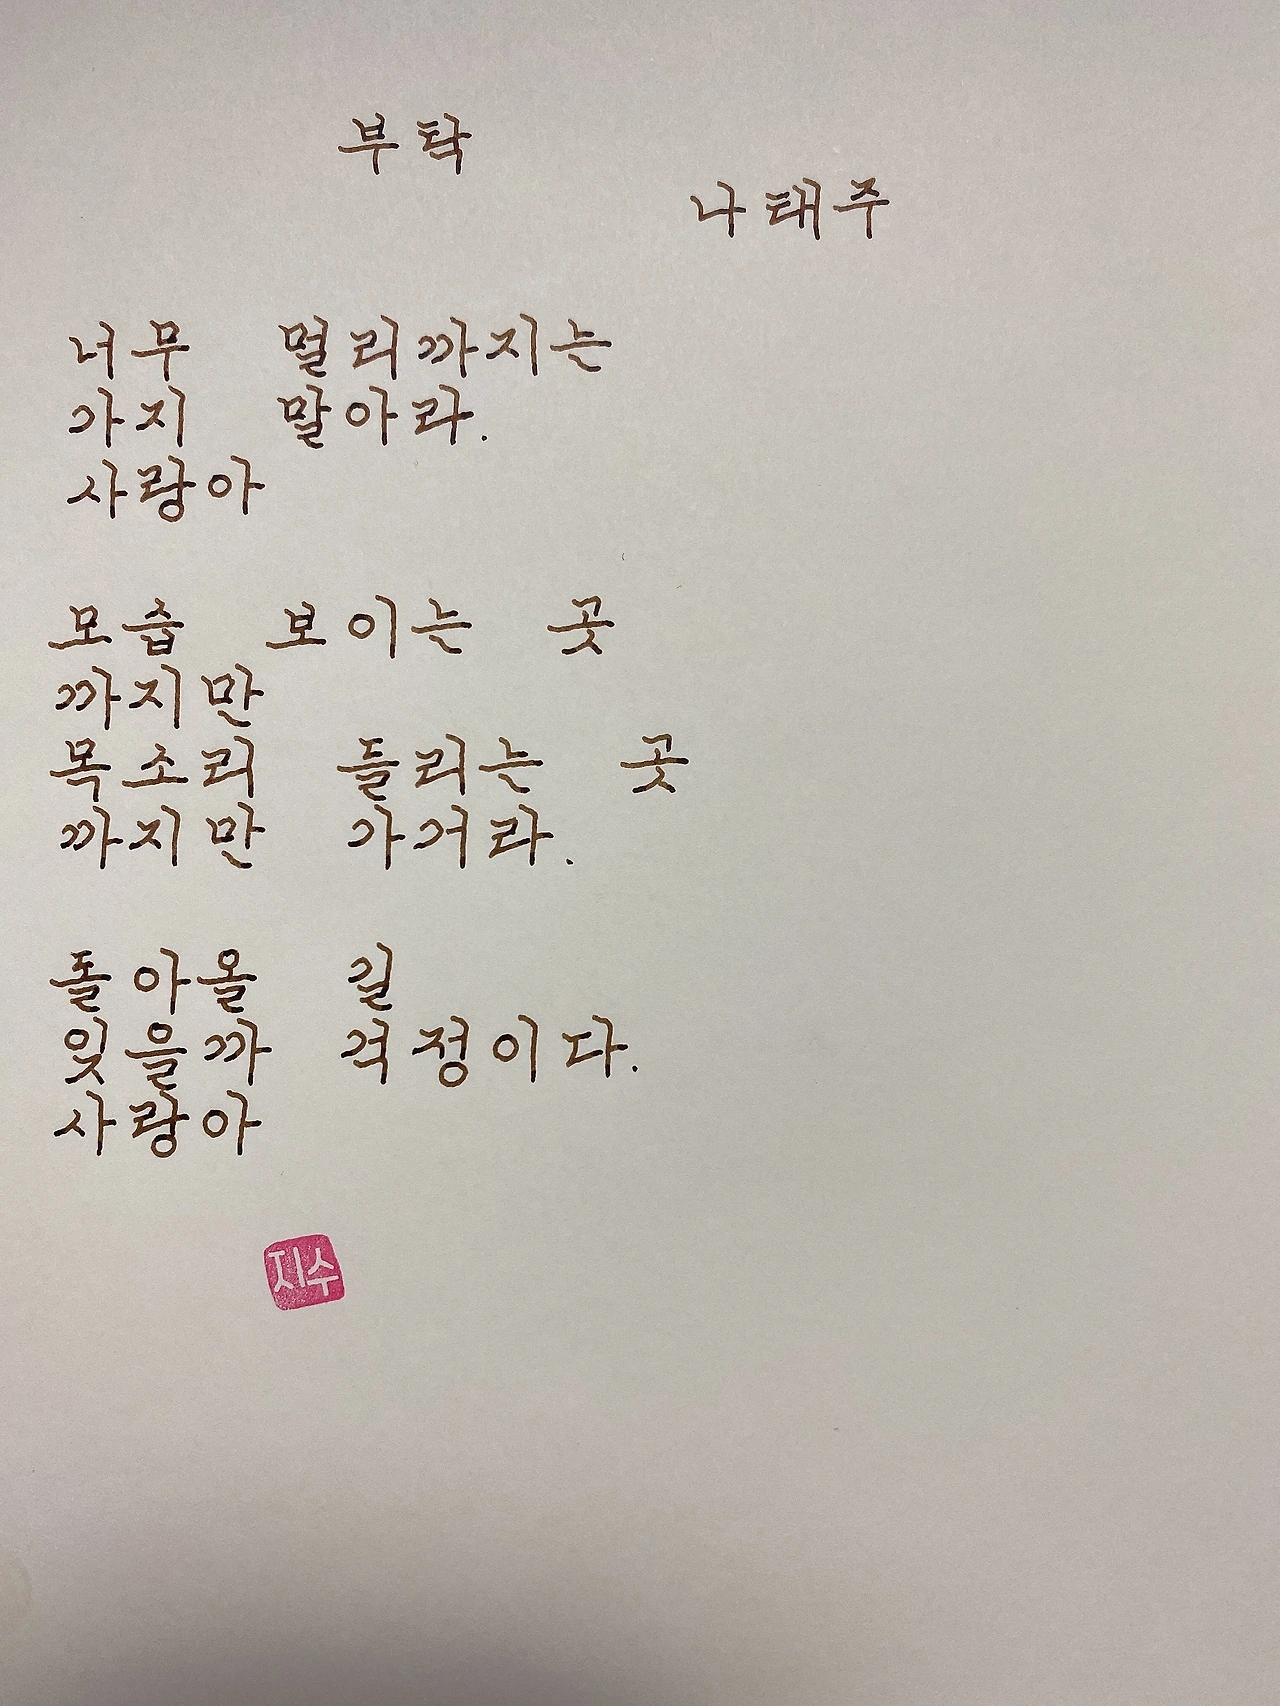 부탁
나태주
너무 멀리까지는
가지 말아라.
사랑아
모습 보이는 곳
까지만
목소리 들리는 곳
까지만 가거라.
돌아올 길
잊을까 걱정이다.
사랑아
지수